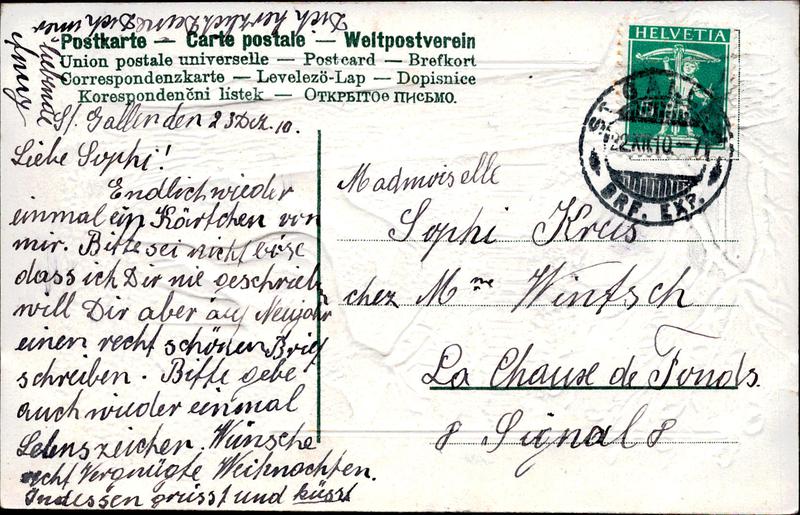 Postkarte — Carte postale — Weltpostverein
Union postale universelle — Postcard — Brefkort
Correspondenzkarte — Levelező-Lap — Dopisnice
Korespondenčni listek — ОТКРЫТОЕ ПИСЬМО.
St. Gallen den 23 Dez. 10.
Liebe Sophi!
Endlich wieder
einmal ein Kärtchen von
mir. Bitte sei nicht böse
dass ich Dir nie geschrieben
will Dir aber auf Neujahr
einen recht schönen Brief
schreiben. Bitte gebe
auch wieder einmal
Lebenszeichen. Wünsche
recht Vergnügte Weihnachten.
Indessen grüsst und küsst
Dich herzlich Deine Dich immer
liebende
HELVETIA
ST. GALLEN
22.XII.10.-7
BRF. EXP.
Madmoiselle
Sophi Kreis
chez Mme Wintsch
La Chause de Fonds.
8 Signal 8